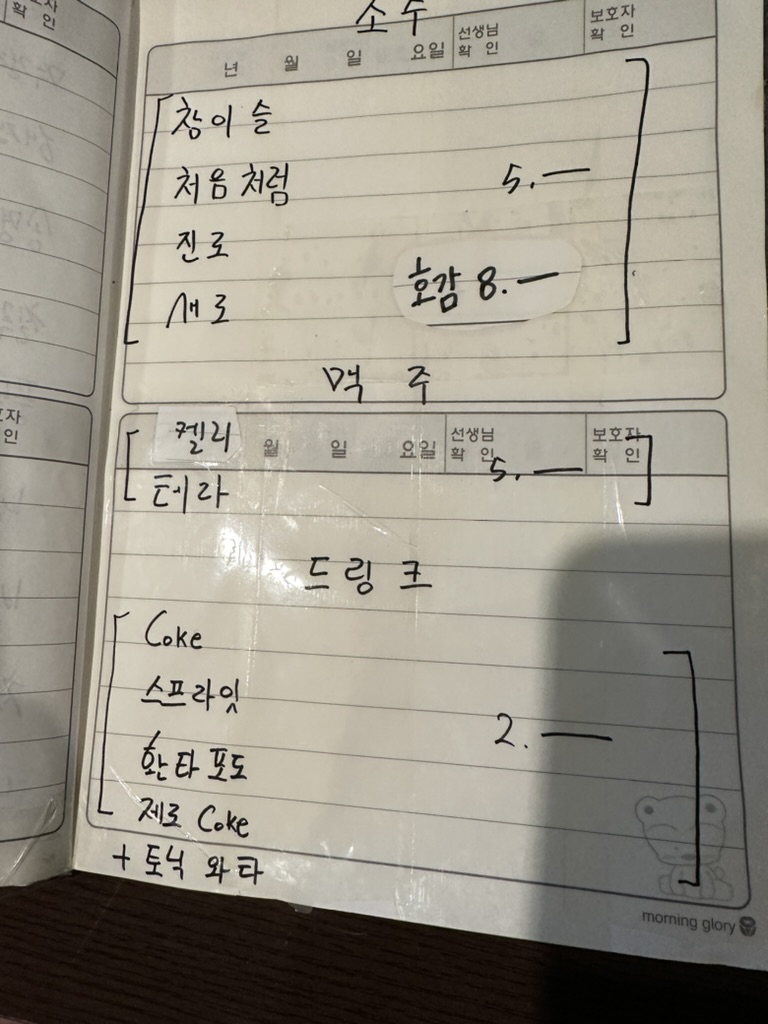 확 인
소 주
년 월 일 요일 선생님 확 인 보호자 확 인
참이슬
처음처럼 5.—
진로
새로 호감 8.—
맥 주
켈리 월 일 요일 선생님 확 인 보호자 확 인
테라 5.—
드링크
Coke
스프라잇
환타 포도 2.—
제로 Coke
+ 토닉 와타
morning glory